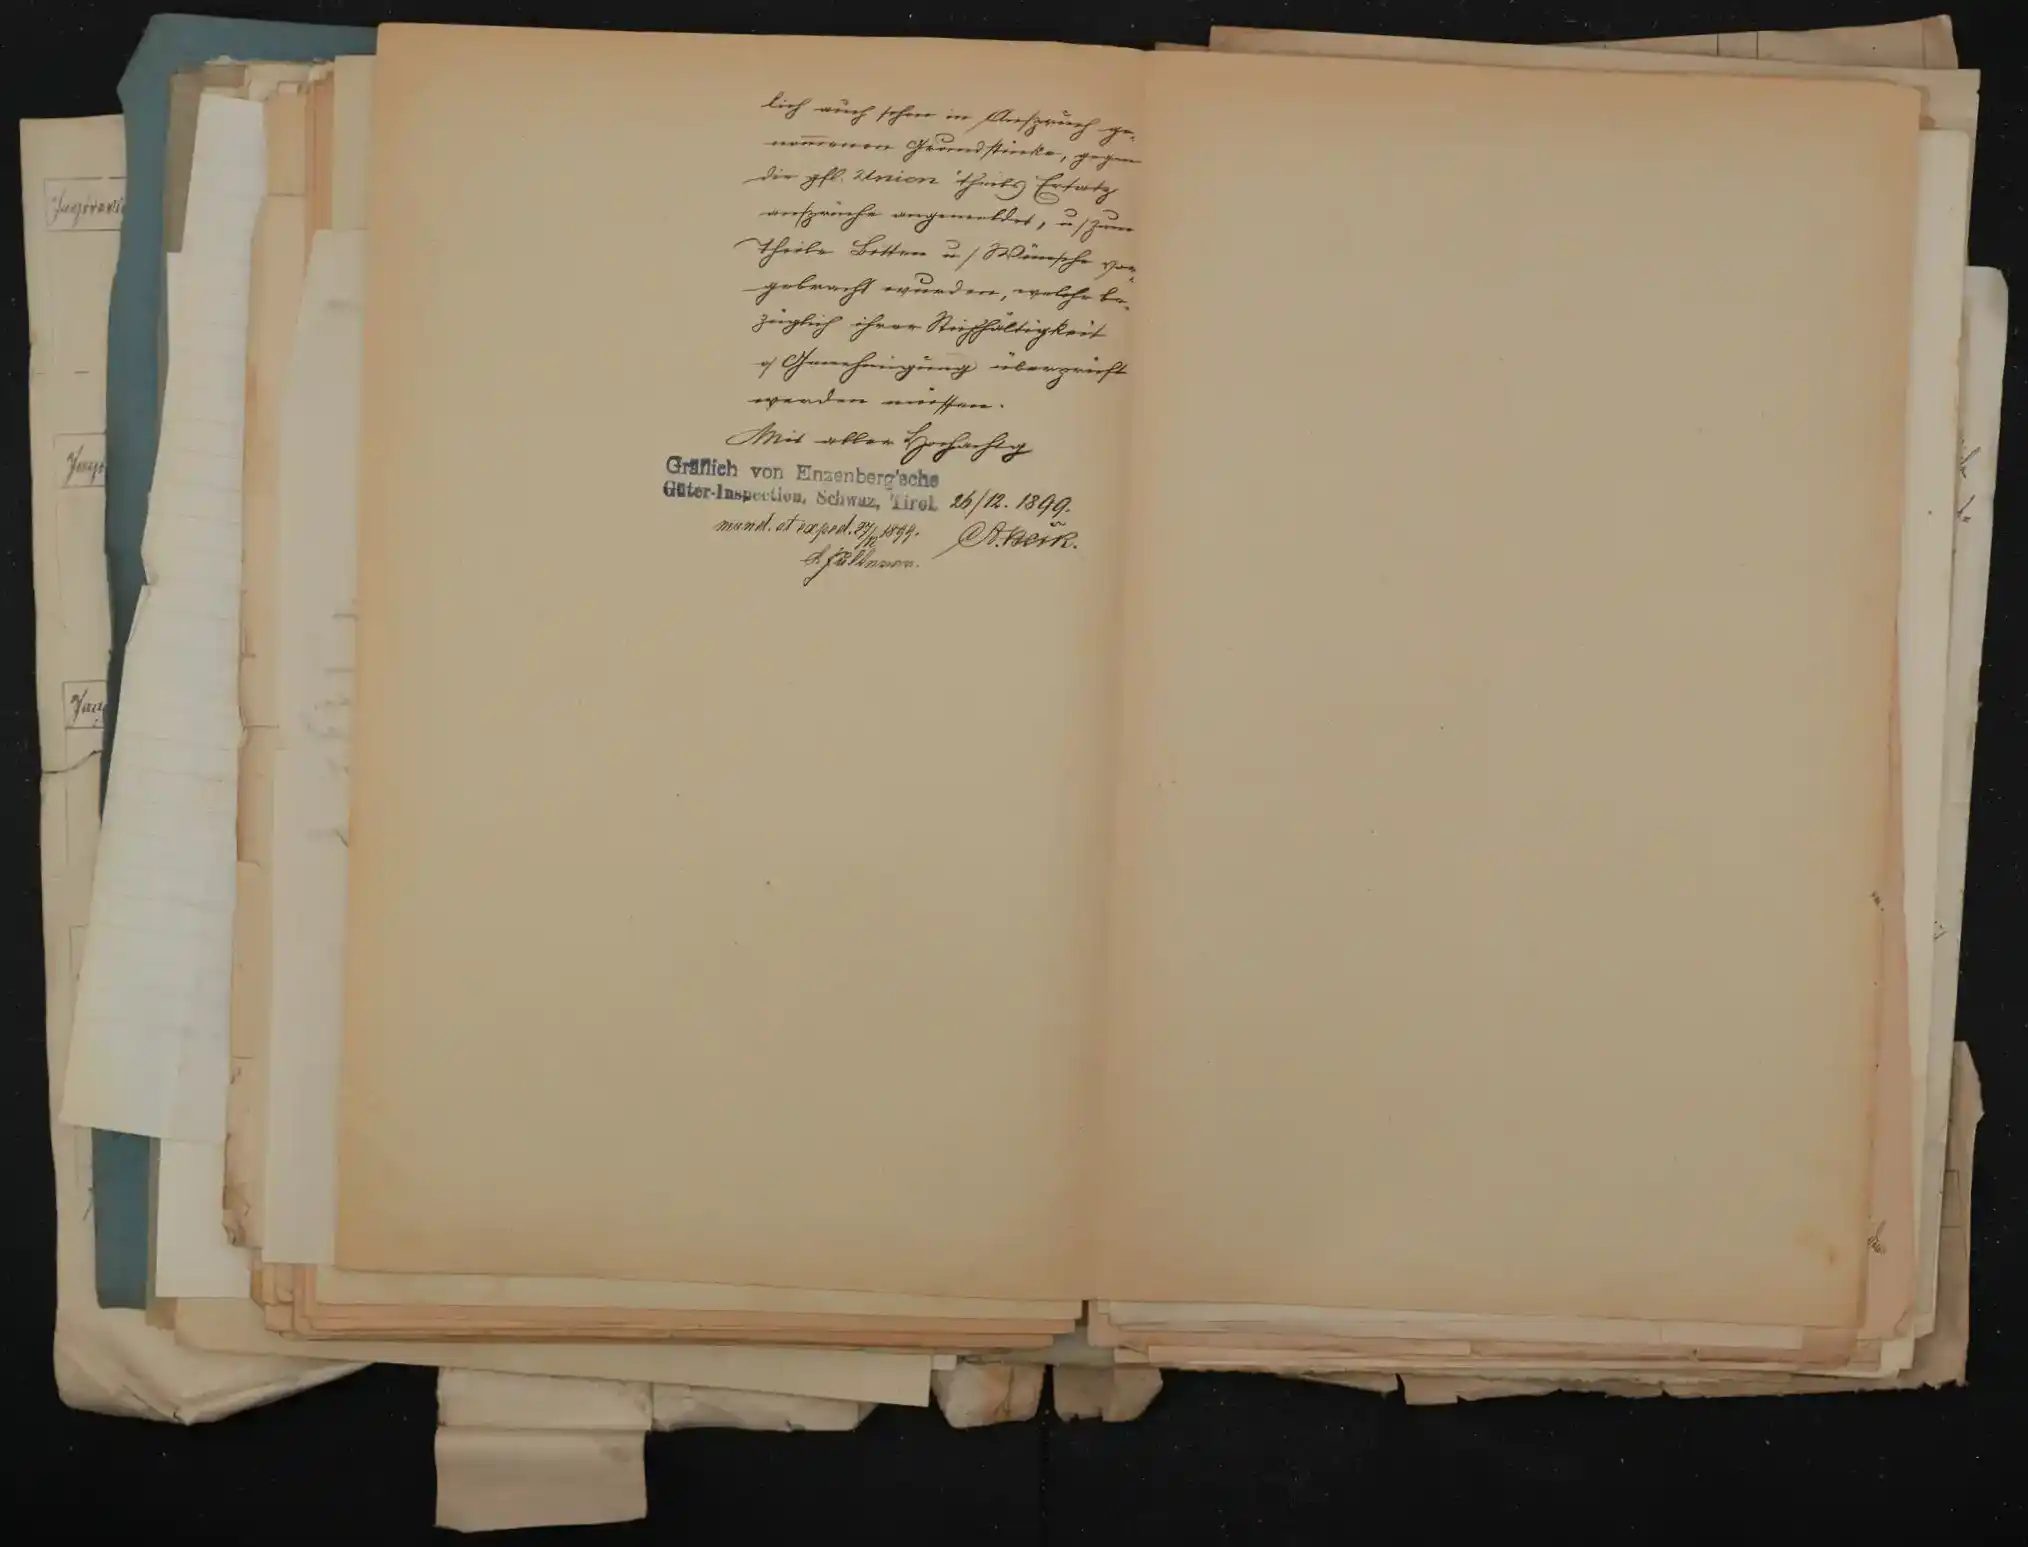 lich auch schon in Anspruch ge-
nom̅enen Grundstücke, gegen
die gfl. Union theils Ersatz
ansprüche angemeldet, u/ zum
Theile Bitten u/ Wünsche vor-
gebracht wurden, welche be-
züglich ihrer Stichhältigkeit
o/ Genehmigung überprüft
werden müssen.
Mit aller Hochachtg
Gräflich von Enzenberg'sche
Güter-Inspection, Schwaz, Tirol. 26/12. 1899.
mund. et exped. 27/12 1899.